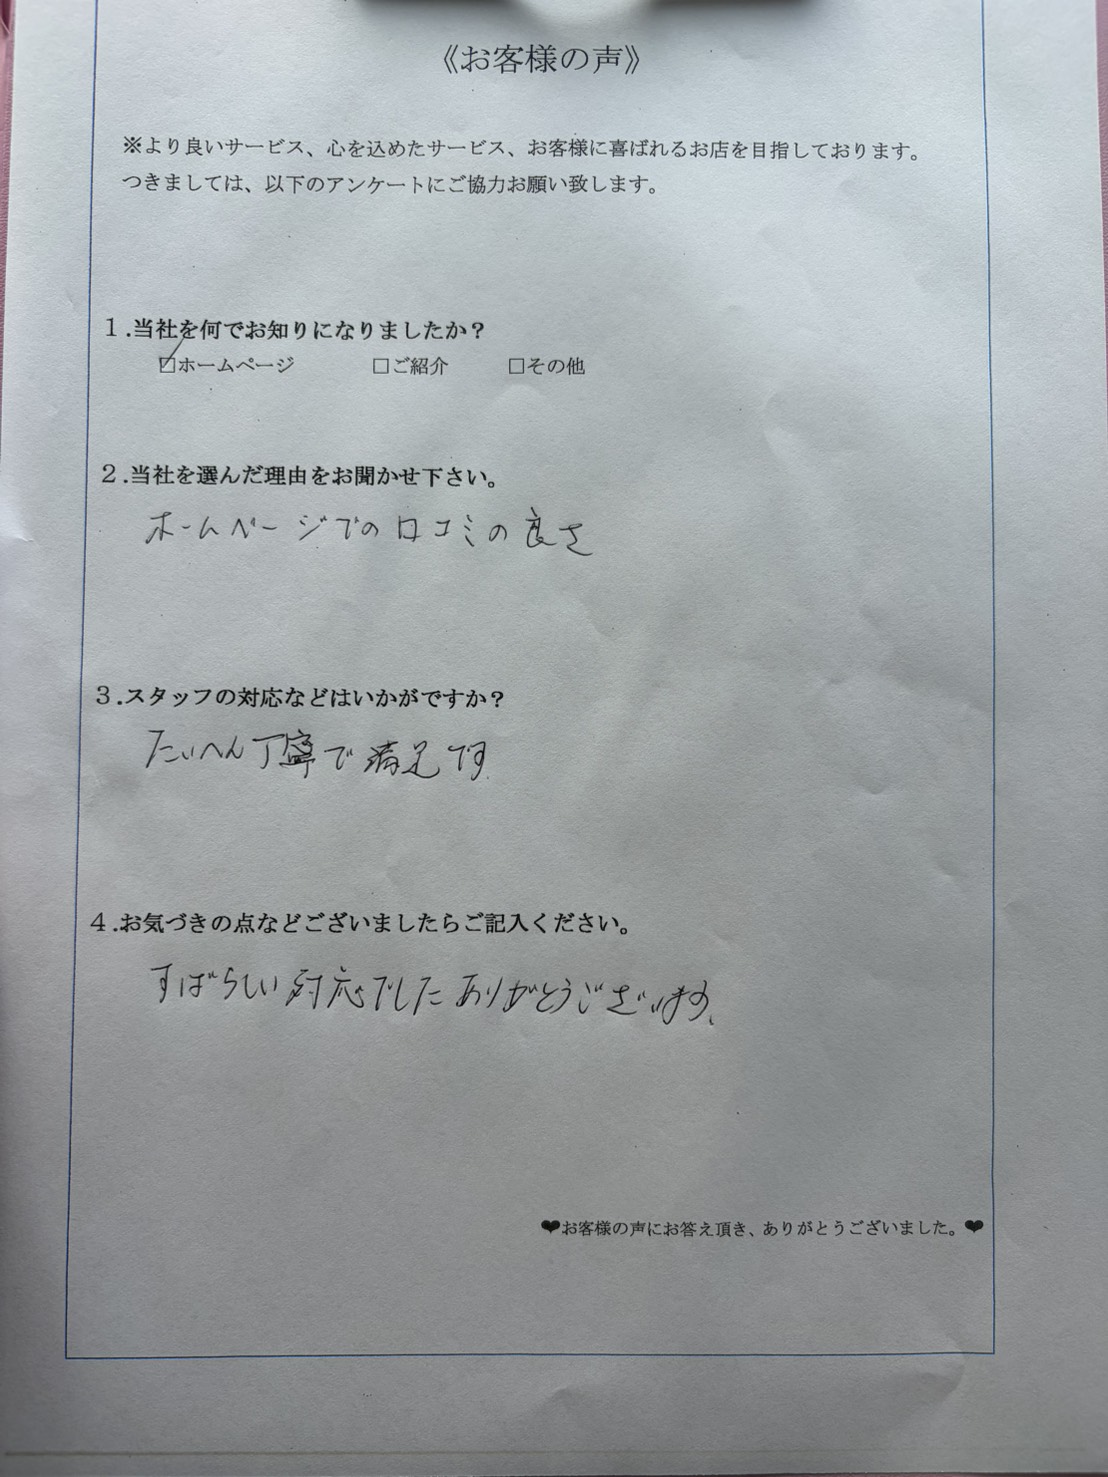 《お客様の声》
※より良いサービス、心を込めたサービス、お客様に喜ばれるお店を目指しております。
つきましては、以下のアンケートにご協力お願い致します。
１.当社を何でお知りになりましたか？
☑ホームページ □ご紹介 □その他
２.当社を選んだ理由をお聞かせ下さい。
ホームページでの口コミの良さ
３.スタッフの対応などはいかがですか？
たいへん丁寧で満足です
４.お気づきの点などございましたらご記入ください。
すばらしい対応でしたありがとうございます、
❤お客様の声にお答え頂き、ありがとうございました。❤